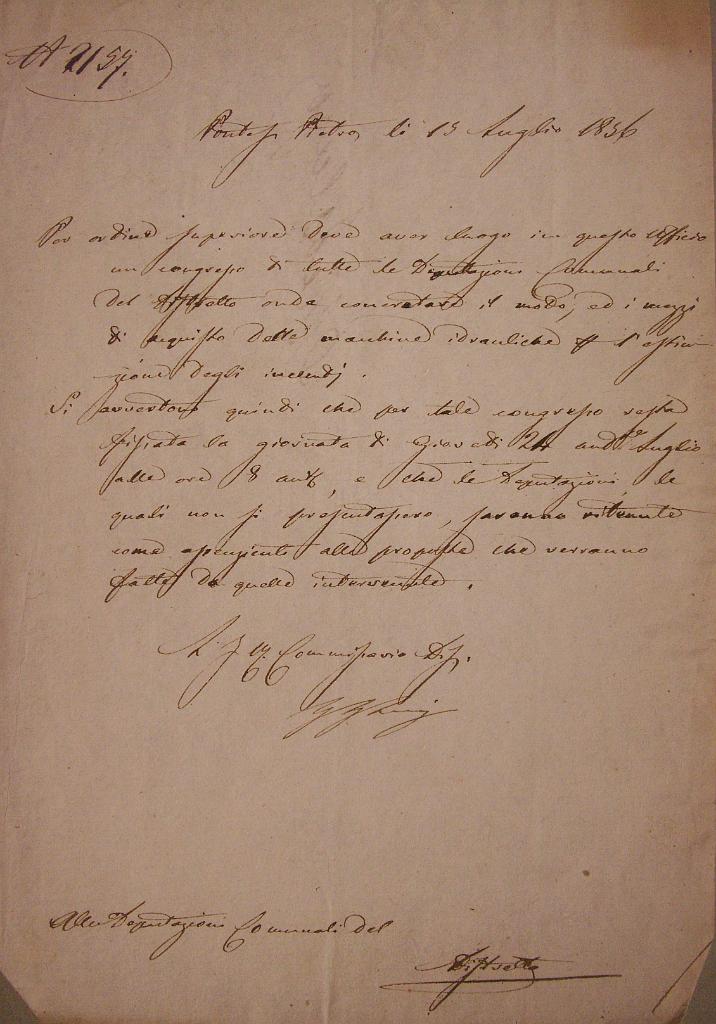 N 2157.
Ponte S. Pietro, li 15 Luglio 1856
Per ordine superiore deve aver luogo in questo Ufficio
un congresso di tutte le Deputazioni Comunali
del Distretto onde concretare il modo, ed i mezzi
di acquisto delle macchine idrauliche l'estin-
zione degli incendj.
Si avvertono quindi che per tale congresso resta
fissata la giornata di Giovedì 24 and.e Luglio
alle ore 8 ant., e che le Deputazioni, le
quali non si presentassero, saranno ritenute
come assenzienti alle proposte che verranno
fatte da quelle intervenute.
L'I. R. Commissario Dis.
Alle Deputazioni Comunali del
Distretto